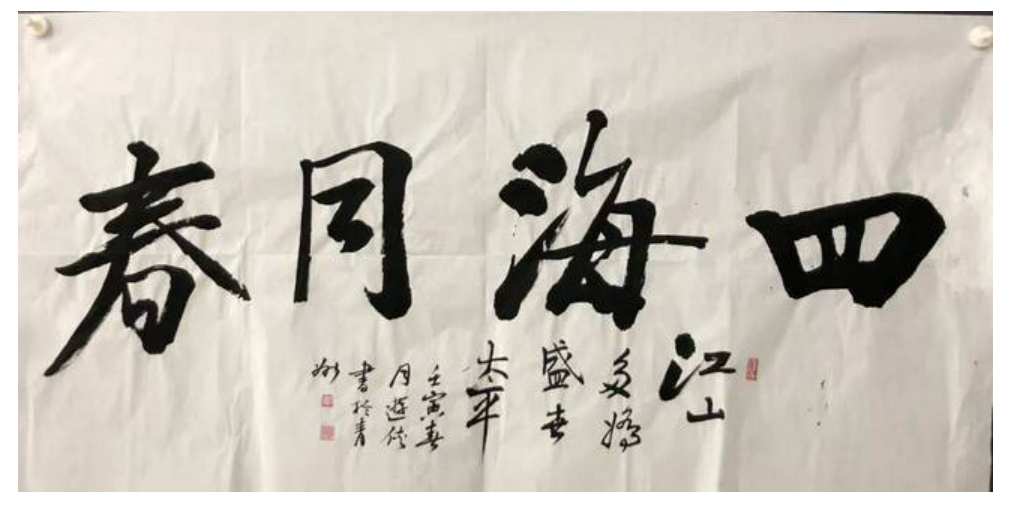 四海同春
江山
多嬌
盛世
太平
壬寅春
月遊俠
書於青